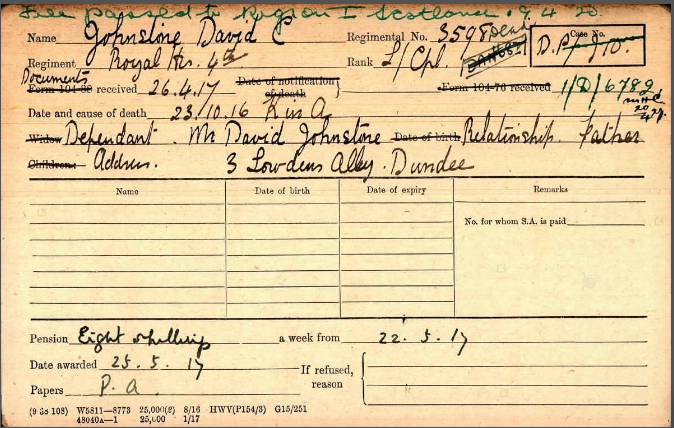 File passed to Region I Scotland 9.4.23.
Name Johnstone David C Regimental No. 3598 Dead Case No.
Regiment Royal Hrs. 4th Rank L/Cpl. D.P.
Documents
Form 104-88 received 26.4.17 Date of notification of death Form 104-76 received 1/D/6789
Date and cause of death 23.10.16 K in A
Widow Dependant. Mr David Johnstone Date of birth Relationship. Father
Children: Address. 3 Lowdens Alley. Dundee
Name Date of birth Date of expiry Remarks
No. for whom S.A. is paid
Pension Eight shillings a week from 22.5.17
Date awarded 25.5.17 If refused, reason
Papers P.A.
(9 35 108) W5811—8773 25,000(2) 8/16 HWV(P154/3) G15/251
48040A—1 25,000 1/17